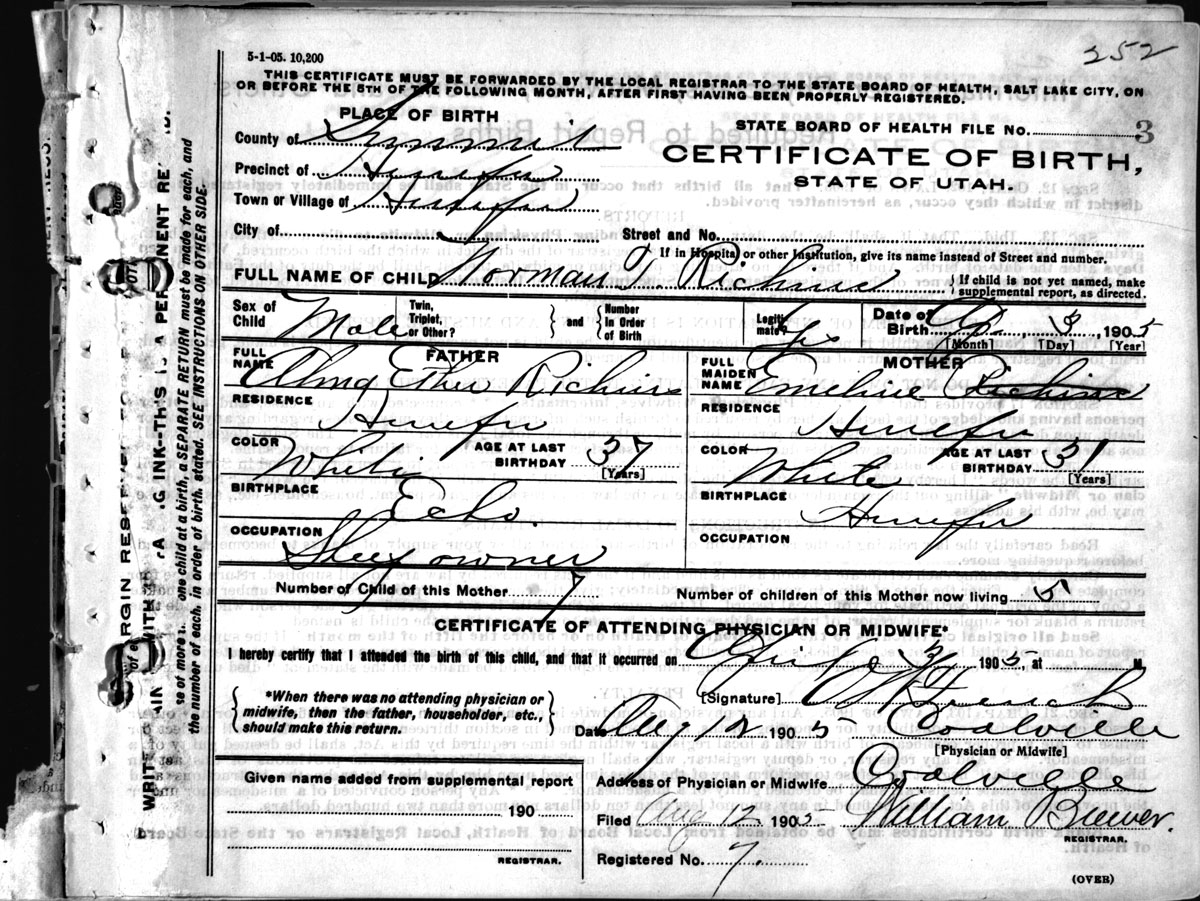 252
5-1-05. 10,200
THIS CERTIFICATE MUST BE FORWARDED BY THE LOCAL REGISTRAR TO THE STATE BOARD OF HEALTH, SALT LAKE CITY, ON
OR BEFORE THE 5TH OF THE FOLLOWING MONTH, AFTER FIRST HAVING BEEN PROPERLY REGISTERED.
PLACE OF BIRTH
STATE BOARD OF HEALTH FILE No. 3
County of Summit
CERTIFICATE OF BIRTH,
STATE OF UTAH.
Precinct of
Town or Village of
City of
Street and No.
If in Hospital or other Institution, give its name instead of Street and number.
FULL NAME OF CHILD Norman T. Richins
If child is not yet named, make
supplemental report, as directed.
Sex of Child Male
Twin, Triplet, or Other?
and
Number In Order of Birth
Legitimate? Yes
Date of Birth 3, 1905
[Month] [Day] [Year]
FATHER
FULL NAME Alma Richins
RESIDENCE
COLOR White
AGE AT LAST BIRTHDAY 37
[Years]
BIRTHPLACE Echo.
OCCUPATION Sheep owner
MOTHER
FULL MAIDEN NAME Emeline Richins
RESIDENCE
COLOR White
AGE AT LAST BIRTHDAY 31
[Years]
BIRTHPLACE
OCCUPATION
Number of Child of this Mother 7
Number of children of this Mother now living 5
CERTIFICATE OF ATTENDING PHYSICIAN OR MIDWIFE:
I hereby certify that I attended the birth of this child, and that it occurred on April 3, 1905, at M.
*When there was no attending physician or
midwife, then the father, householder, etc.,
should make this return.
[Signature] French
Date Aug 12 1905 Coalville
[Physician or Midwife]
Given name added from supplemental report
190
REGISTRAR.
Address of Physician or Midwife Coalville
Filed Aug 12, 1905 William Brewer.
REGISTRAR.
Registered No. 7.
(OVER)
one child at a birth, a SEPARATE RETURN must be made for each, and
the number of each, in order of birth, stated. SEE INSTRUCTIONS ON OTHER SIDE.